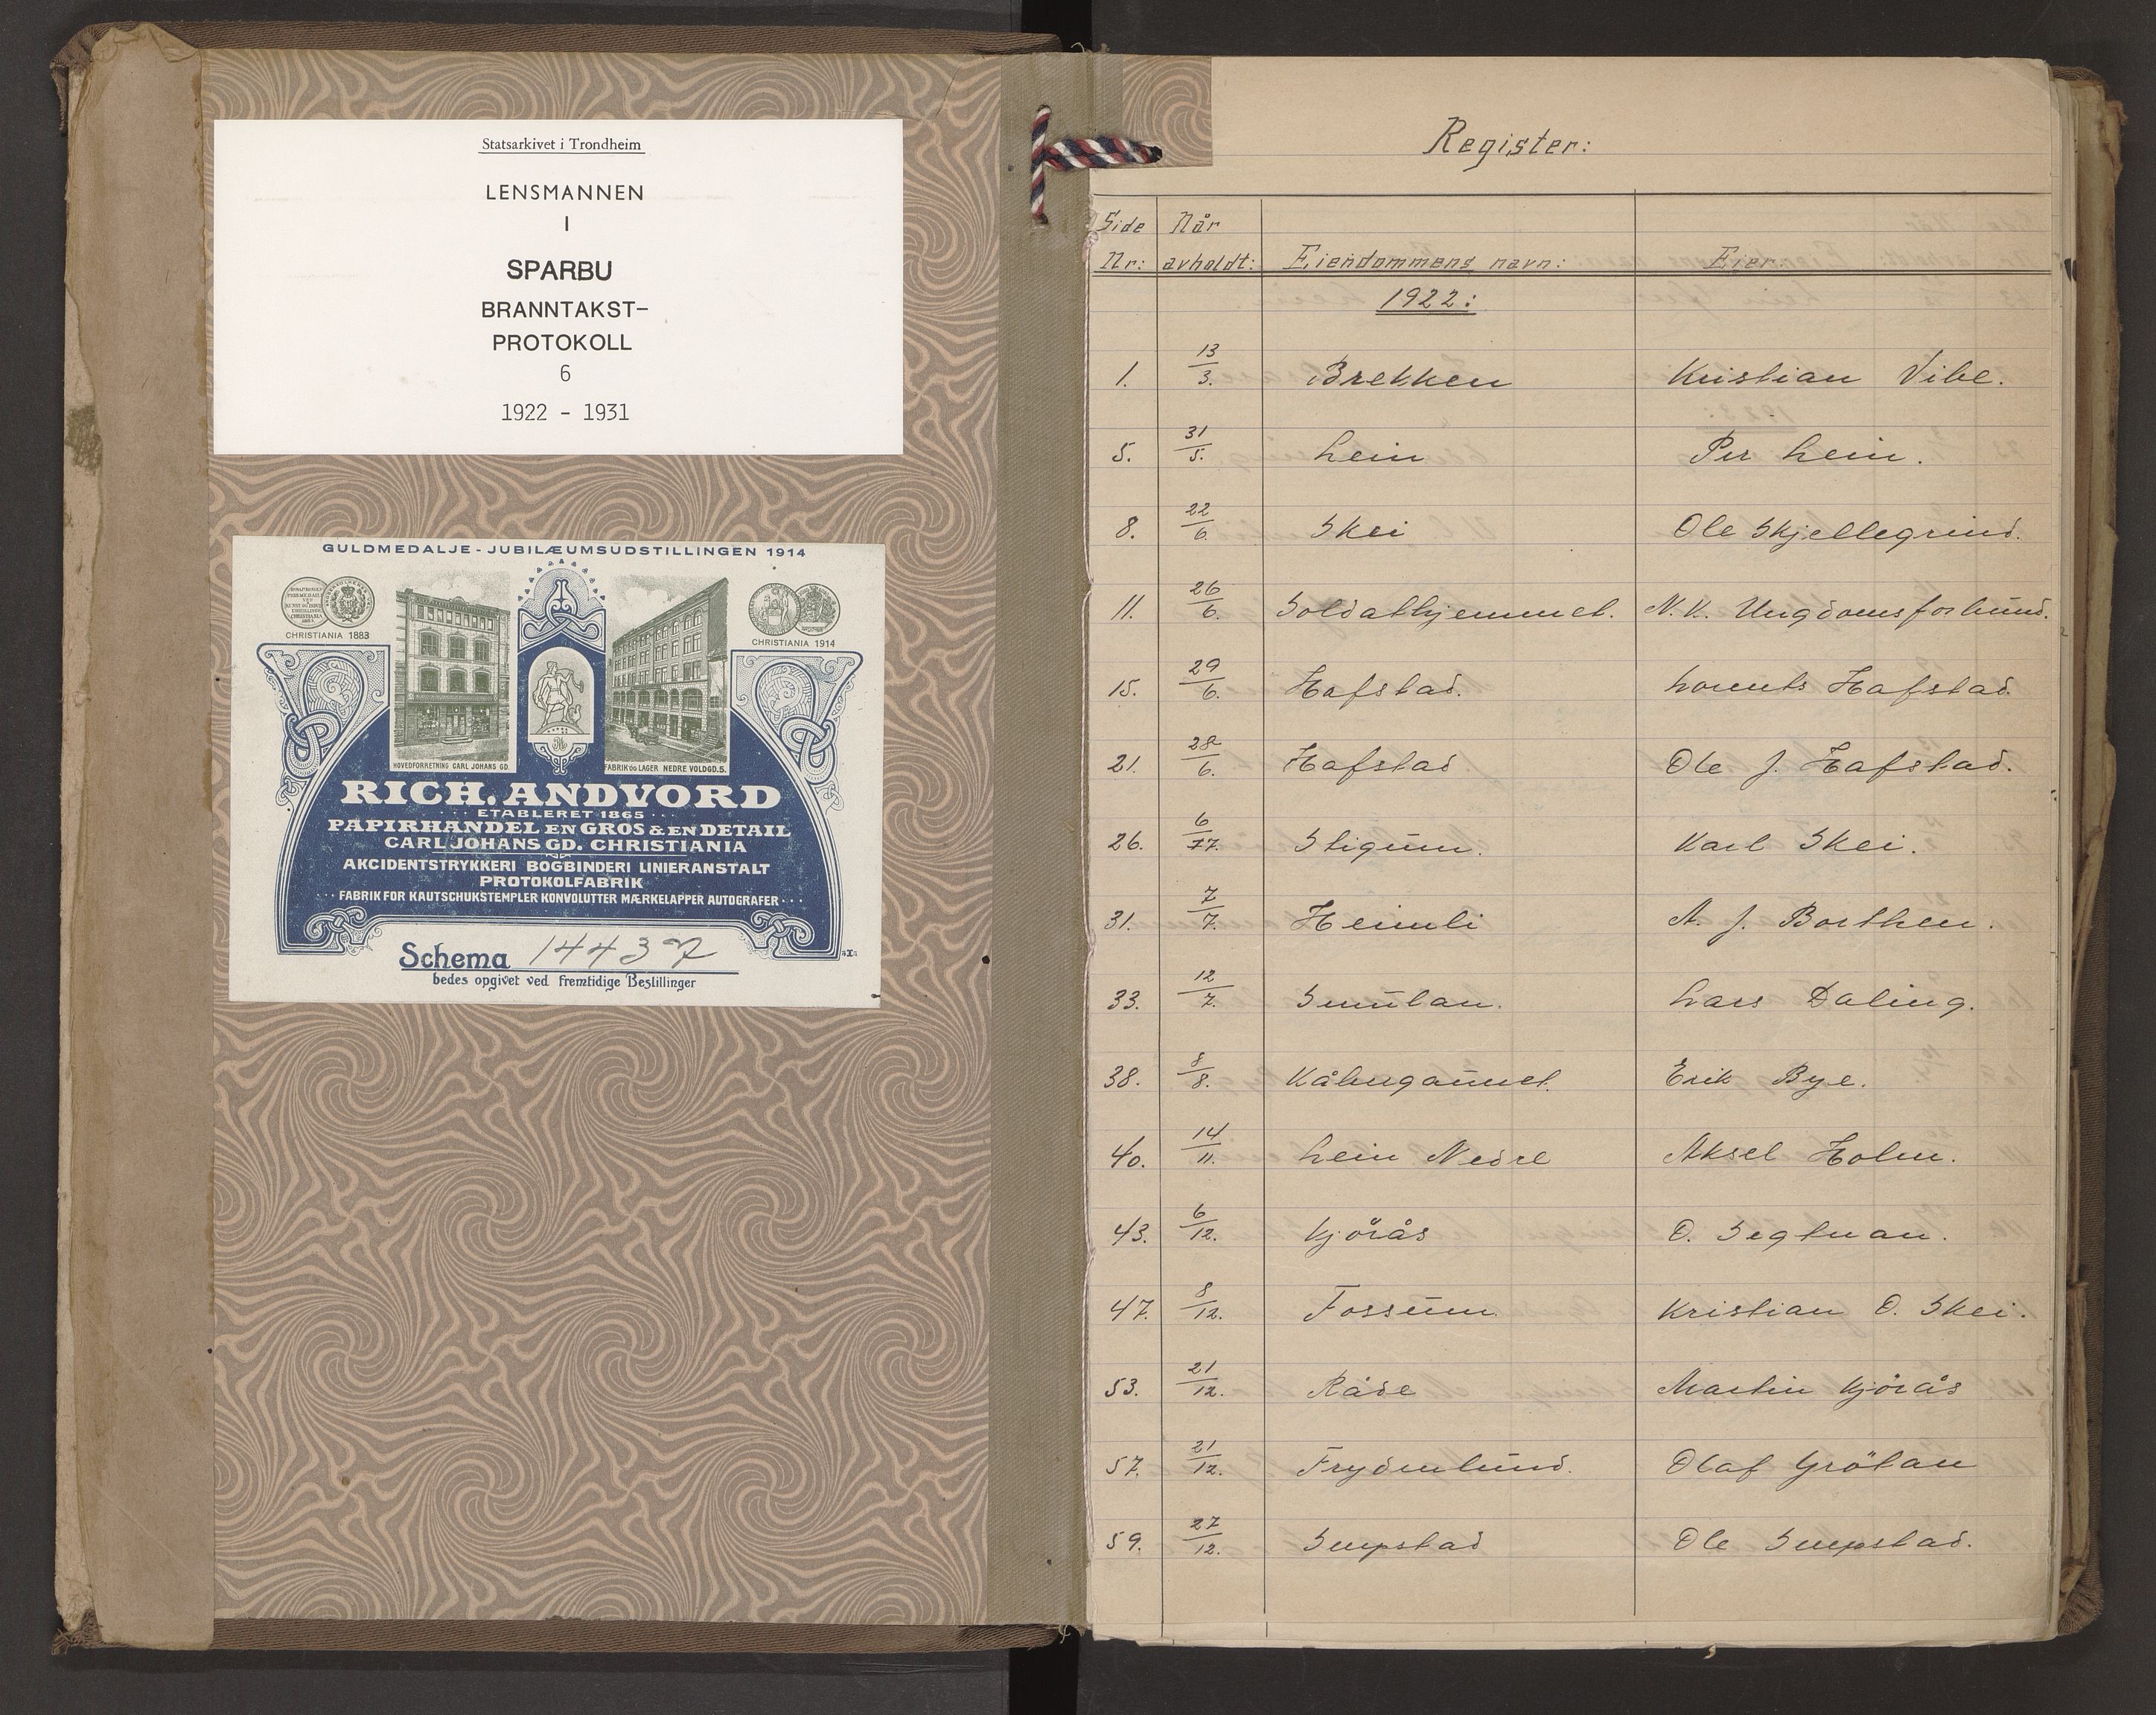 Statsarkivet i Trondheim
LENSMANNEN
I
SPARBU
BRANNTAKST-
PROTOKOLL
6
1922 - 1931
GULDMEDALJE - JUBILÆUMSUDSTILLINGEN 1914
CHRISTIANIA 1883
CHRISTIANIA 1914
HOVEDFORRETNING CARL JOHANS GD.
FABRIK OG LAGER NEDRE VOLDGD. 5.
RICH. ANDVORD
ETABLERET 1865
PAPIRHANDEL EN GROS & EN DETAIL
CARL JOHANS GD. CHRISTIANIA
AKCIDENTSTRYKKERI BOGBINDERI LINIERANSTALT
PROTOKOLFABRIK
FABRIK FOR KAUTSCHUKSTEMPLER KONVOLUTTER MÆRKELAPPER AUTOGRAFER
Schema 14437
bedes opgivet ved fremtidige Bestillinger
Register:
Side Når
Nr: avholdt: Eiendommens navn: Eier:
1922:
1. 13/3. Brekken Kristian Vibe.
5. 31/5. Lein Per Lein.
8. 22/6. Skei Ole Skjellegrind.
11. 26/6. Soldathjemmet. N.K. Ungdomsforbund.
15. 29/6. Hafstad. Lorents Hafstad
21. 28/6. Hafstad Ole J. Hafstad.
26. 6/7. Stigum. Karl Skei.
31. 7/7. Heimli A. J. Borthen.
33. 12/7. Lars Daling.
38. 8/8. Erik Bye.
40. 14/11. Lein Nedre Aksel Holm.
43. 6/12. Kjörås O. Segtnan.
47. 8/12. Fossum. Kristian O. Skei.
53. 21/12. Råde Martin Kjörås
57. 21/12. Frydenlund. Olaf Grötan
59. 27/12. Sempstad Ole Sempstad.